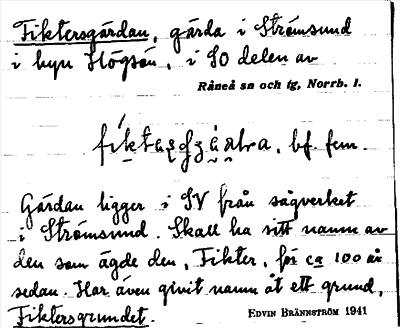 Fiktersgärdan, gärda i Strömsund
i byn Högsön, i SO delen av
Råneå sn och tg, Norrb. l.
bf. fem.
Gärdan ligger i SV från sågverket
i Strömsund. Skall ha sitt namn av
den som ägde den, Fikter, för ca 100 år
sedan. Har även givit namn åt ett grund,
Fiktersgrundet.
EDVIN BRÄNNSTRÖM 1941